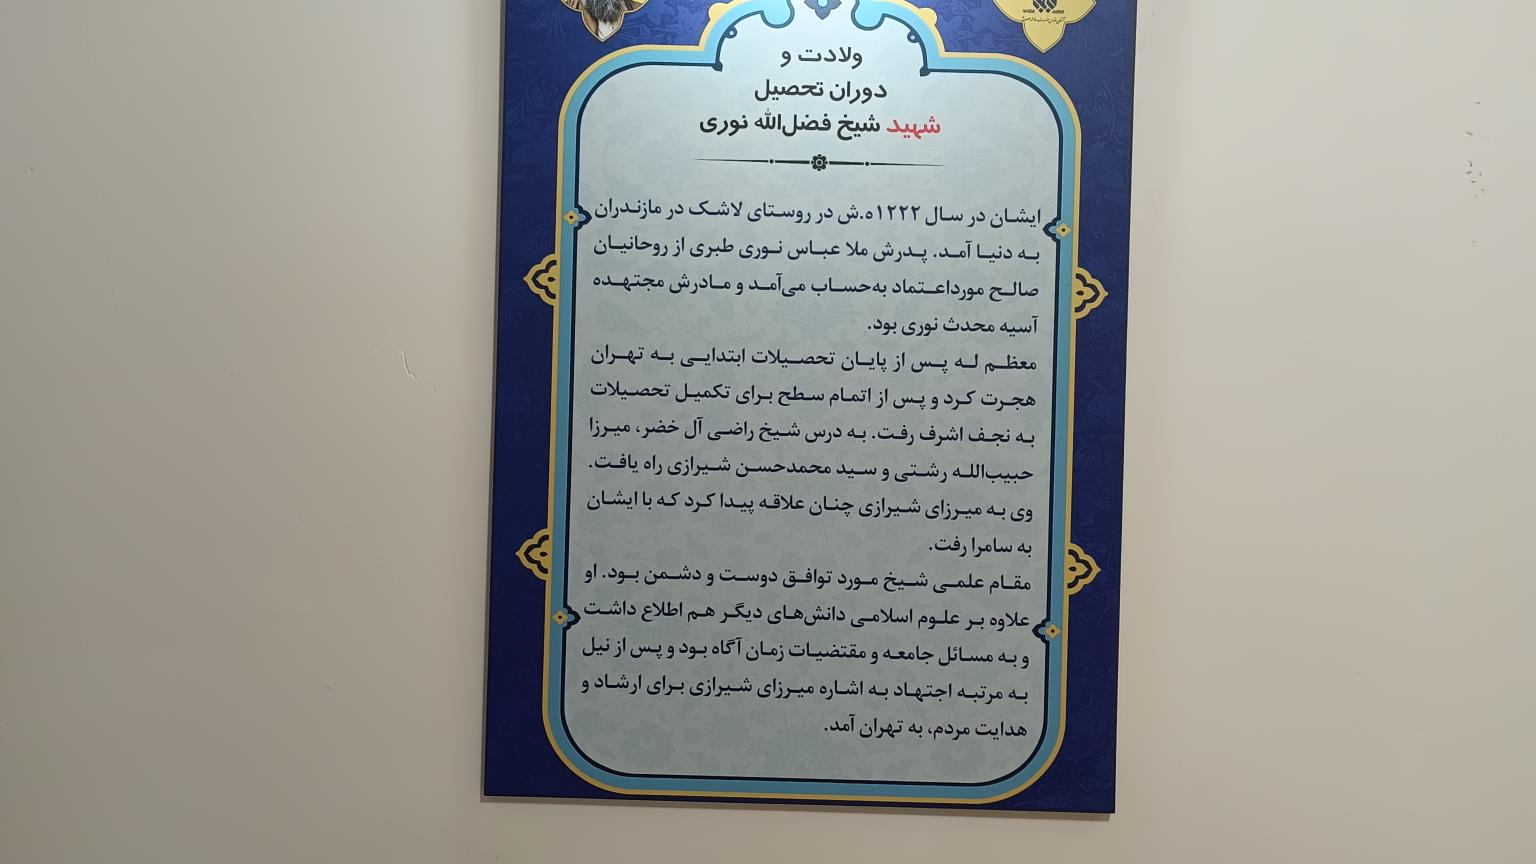 ولادت و
دوران تحصیل
شهید شیخ فضل‌الله نوری
ایشان در سال ۱۲۲۲ه.ش در روستای لاشک در مازندران
به دنیا آمد. پدرش ملا عباس نوری طبری از روحانیان
صالح مورداعتماد به‌حساب می‌آمد و مادرش مجتهده
آسیه محدث نوری بود.
معظم له پس از پایان تحصیلات ابتدایی به تهران
هجرت کرد و پس از اتمام سطح برای تکمیل تحصیلات
به نجف اشرف رفت. به درس شیخ راضی آل خضر، میرزا
حبیب‌الله رشتی و سید محمدحسن شیرازی راه یافت.
وی به میرزای شیرازی چنان علاقه پیدا کرد که با ایشان
به سامرا رفت.
مقام علمی شیخ مورد توافق دوست و دشمن بود. او
علاوه بر علوم اسلامی دانش‌های دیگر هم اطلاع داشت
و به مسائل جامعه و مقتضیات زمان آگاه بود و پس از نیل
به مرتبه اجتهاد به اشاره میرزای شیرازی برای ارشاد و
هدایت مردم، به تهران آمد.